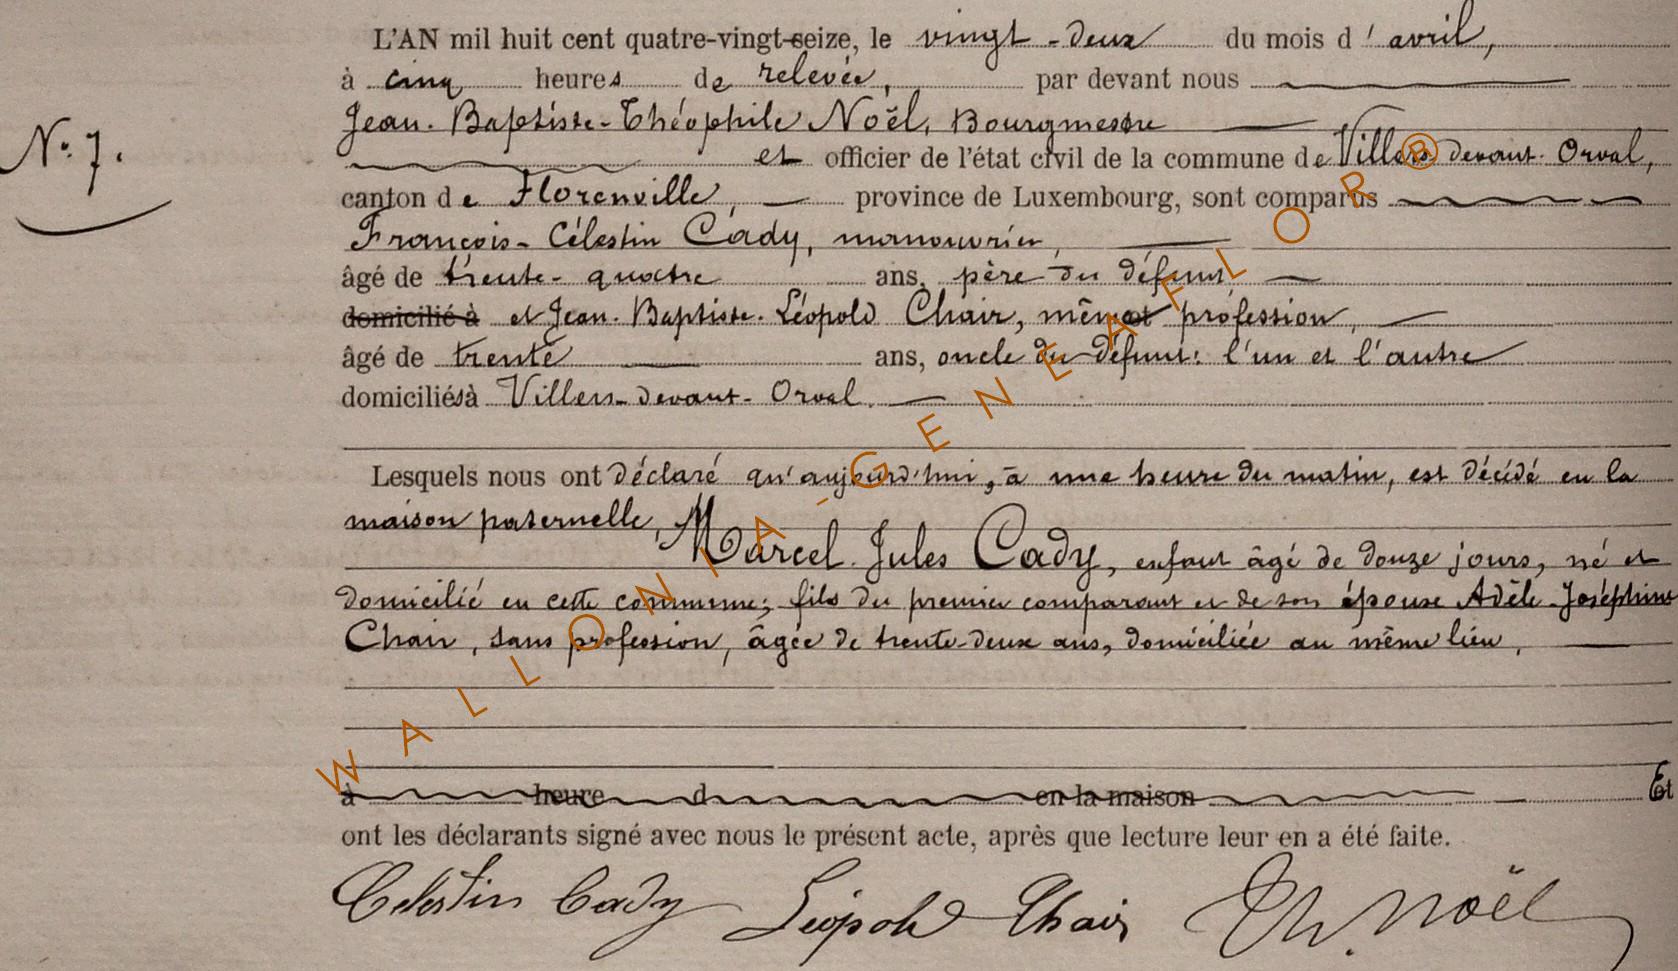 L'AN mil huit cent quatre-vingt-seize, le vingt-deux du mois d'avril,
à cinq heures de relevée, par devant nous
Jean-Baptiste-Théophile Noël, Bourgmestre
N° 7.
et officier de l'état civil de la commune de Villers-devant-Orval,
canton de Florenville, province de Luxembourg, sont comparus
François-Célestin Cady, manouvrier,
âgé de trente-quatre ans, père du défunt
domicilié à et Jean-Baptiste-Léopold Chair, même profession,
âgé de trente ans, oncle du défunt: l'un et l'autre
domiciliés à Villers-devant-Orval.
Lesquels nous ont déclaré qu'aujourd'hui, à une heure du matin, est décédé en la
maison paternelle, Marcel-Jules Cady, enfant âgé de douze jours, né et
domicilié en cette commune; fils du premier comparant et de son épouse Adèle-Joséphine
Chair, sans profession, âgée de trente-deux ans, domiciliée au même lieu,
à heure d en la maison Et
ont les déclarants signé avec nous le présent acte, après que lecture leur en a été faite.
Célestin Cady Léopold Chair Th. Noël
WALLONIA-GENEAFLOR®